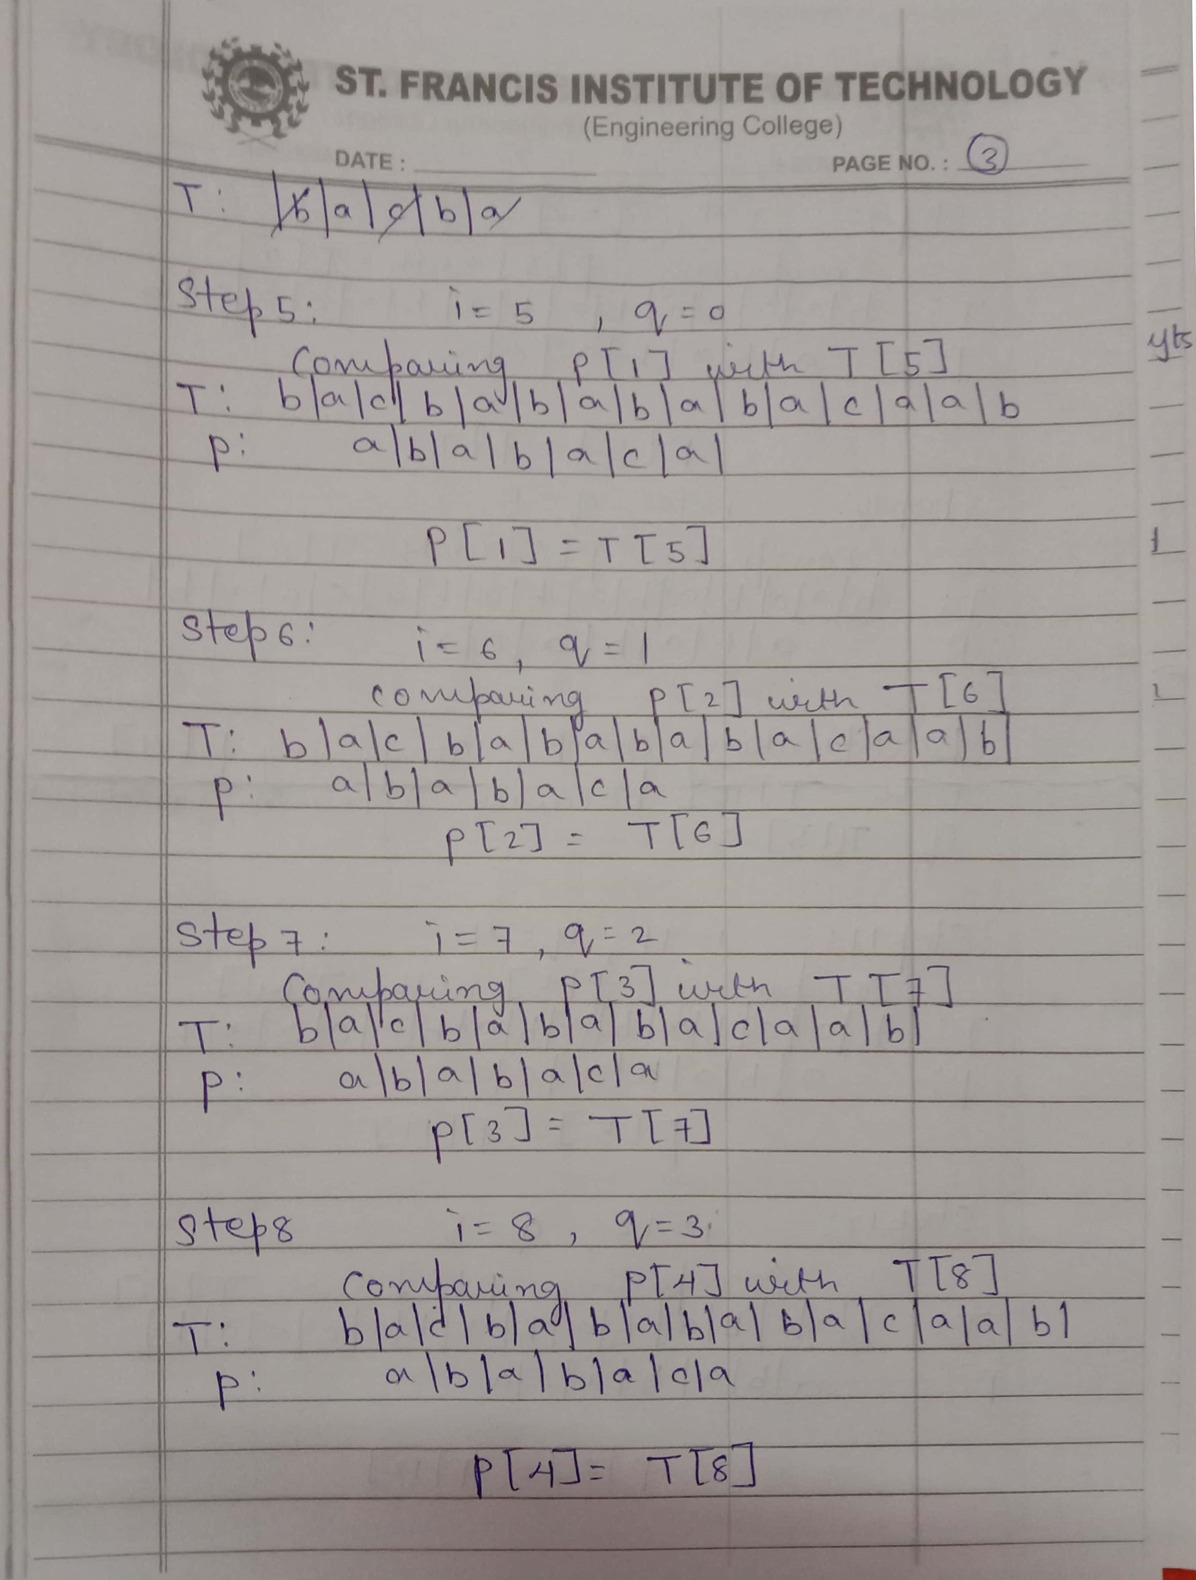 ST. FRANCIS INSTITUTE OF TECHNOLOGY
(Engineering College)
DATE : PAGE NO. : 3
T: |b|a|c|b|a
Step 5: i= 5 , q=0
Comparing P[1] with T[5]
T: b|a|c|b|a|b|a|b|a|b|a|c|a|a|b
p: a|b|a|b|a|c|a|
P[1] = T[5]
Step 6: i= 6, q=1
comparing P[2] with T[6]
T: b|a|c|b|a|b|a|b|a|b|a|c|a|a|b|
p: a|b|a|b|a|c|a
P[2] = T[6]
Step 7: i=7, q=2
Comparing P[3] with T[7]
T: b|a|c|b|a|b|a|b|a|c|a|a|b|
p: a|b|a|b|a|c|a
p[3] = T[7]
Step8 i=8, q=3
Comparing P[4] with T[8]
T: b|a|c|b|a|b|a|b|a|b|a|c|a|a|b|
p: a|b|a|b|a|c|a
P[4]= T[8]